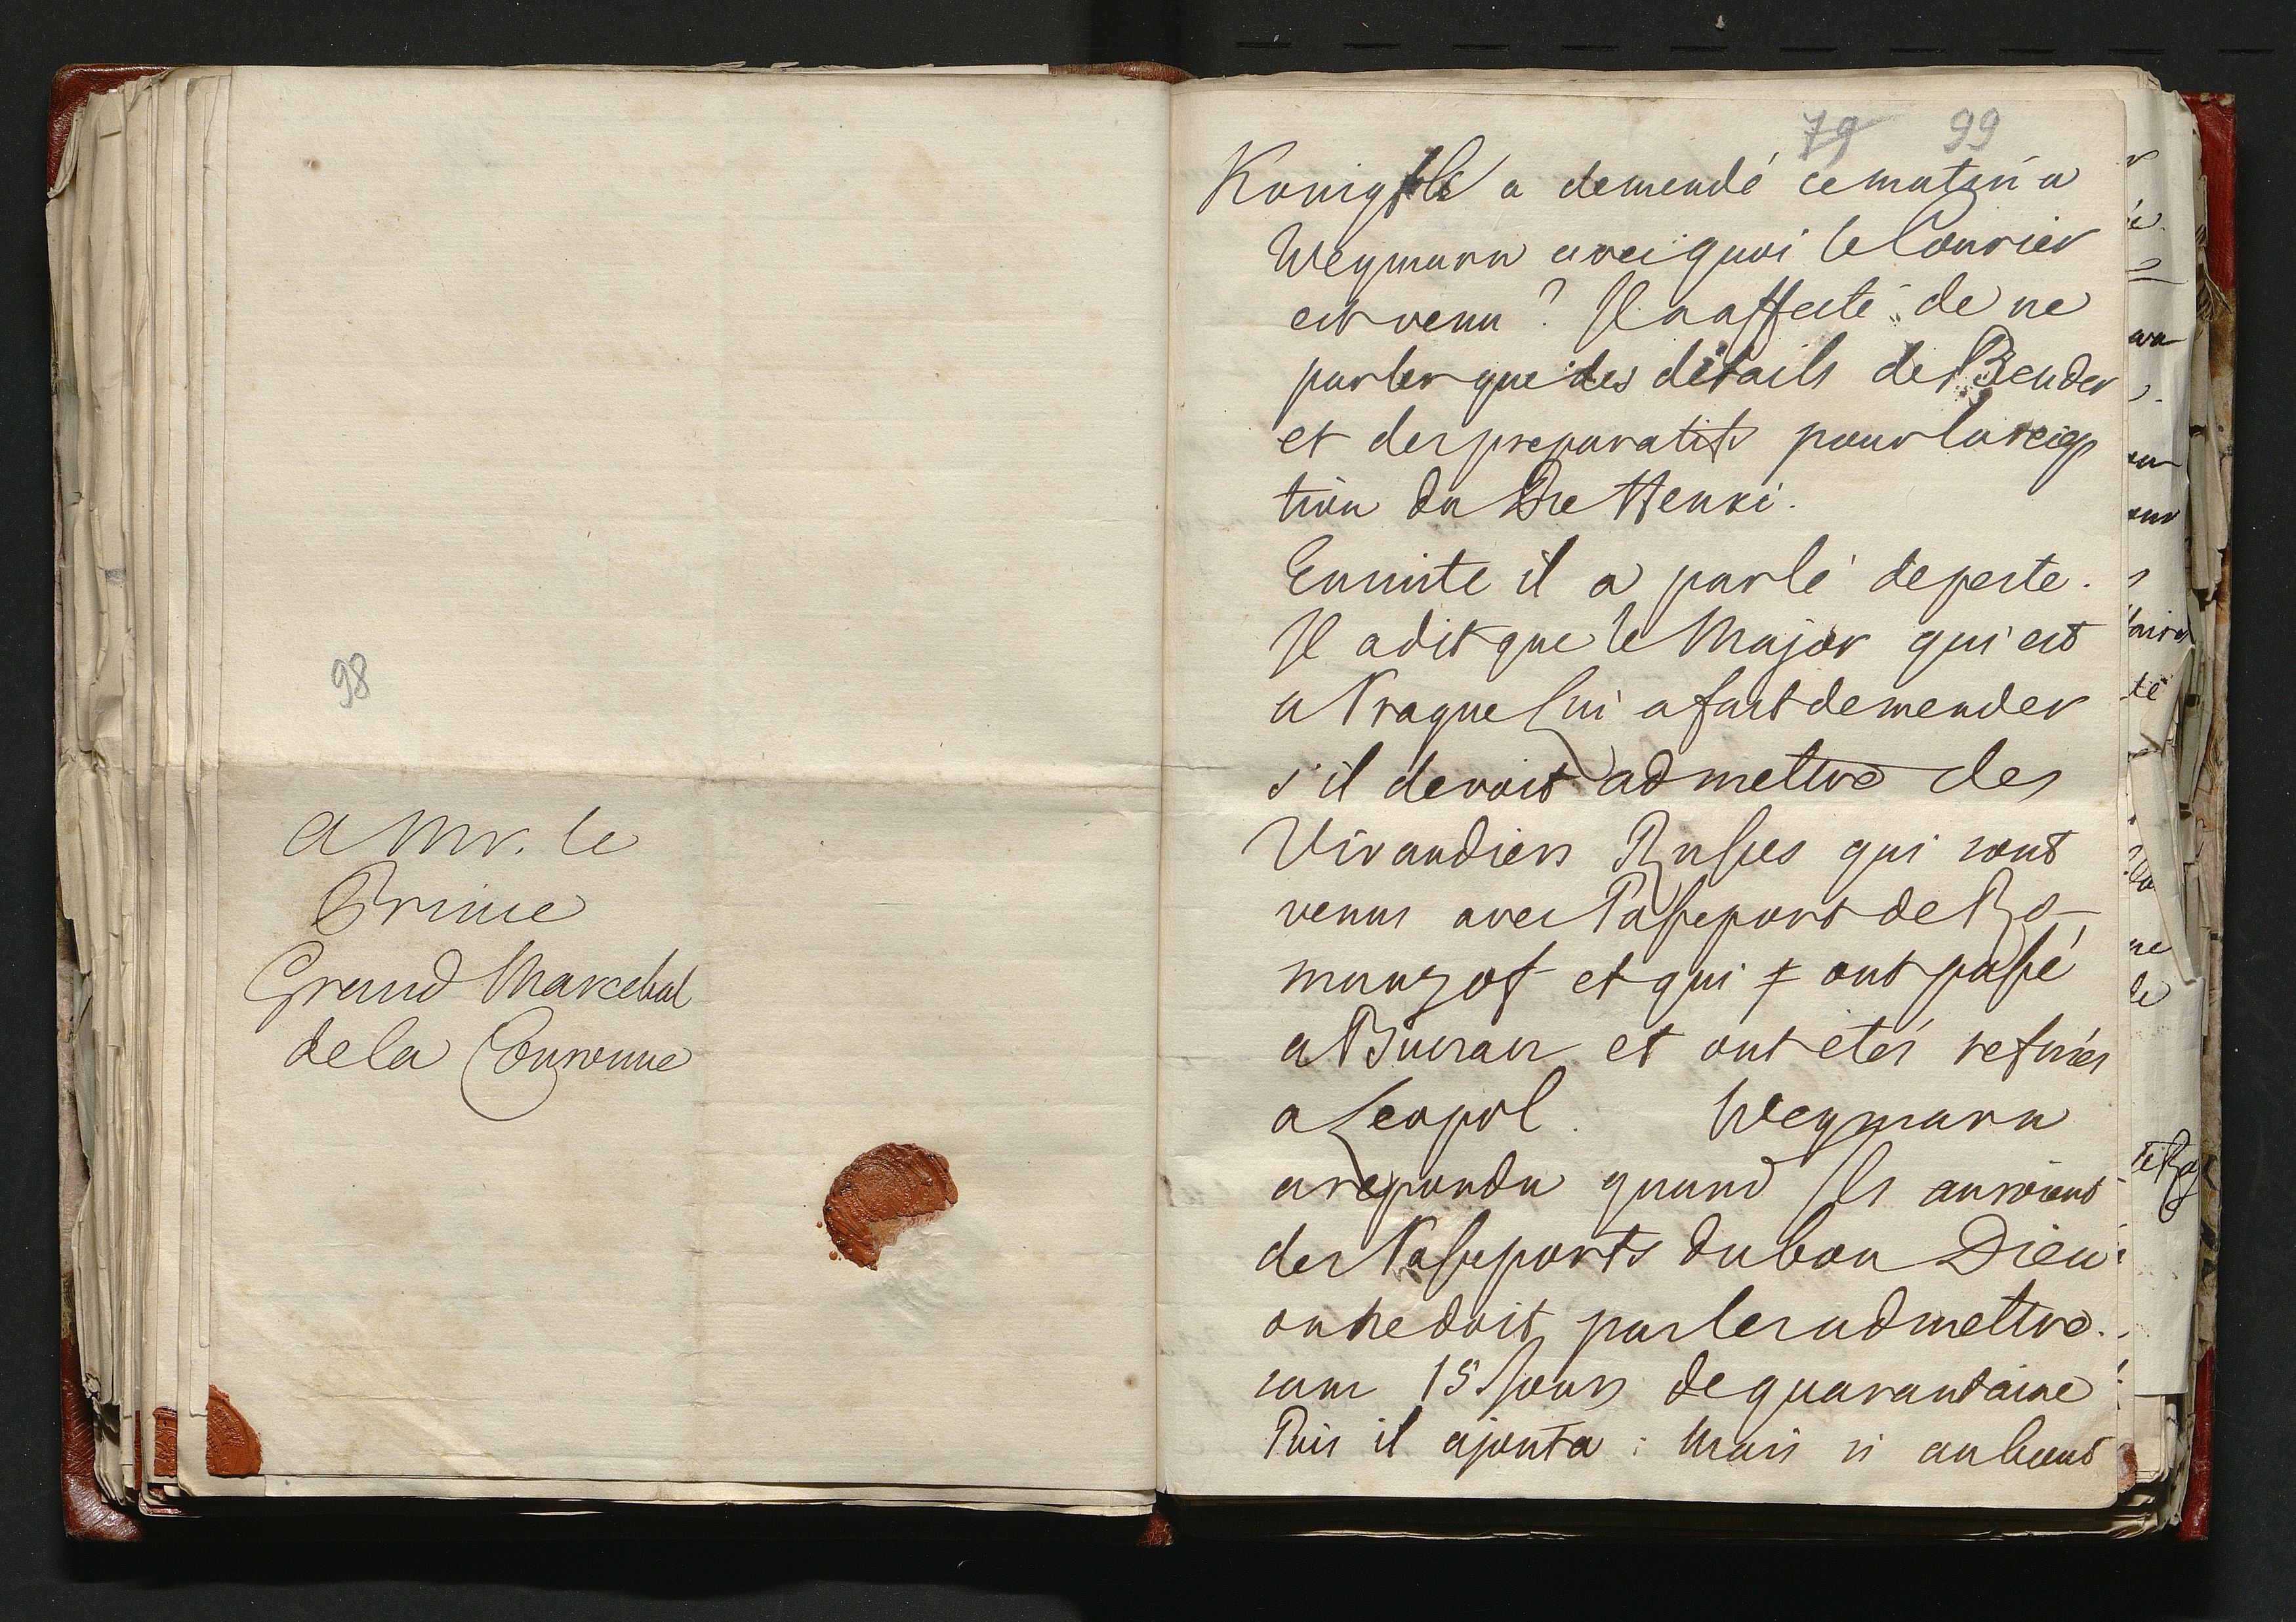 98
a Mr. le
Prince
Grand Marechal
de la Couronne
79 99
Konigfels a demendé ce matin a
Weymarn avec quoi le Courier
est venu? Il a affecté de ne
parler que des détails de Bender
et des preparatifs pour la recep
tion du Pce Henri.
Ensuite il a parlé de peste.
Il a dit que le Major qui est
a Prague lui a fait demender
s'il devoit admettre des
Vivandiers Russes qui sont
venus avec Passeport de Ro-
manzof et qui ont passé
a et ont étés refusés
a Leopol. Weymarn
a repondu quand Ils auroient
des Passeports du bon Dieu
on ne doit pas les admettre.
sans 15 Jours de quarantaine
Puis il ajouta: Mais si au bout